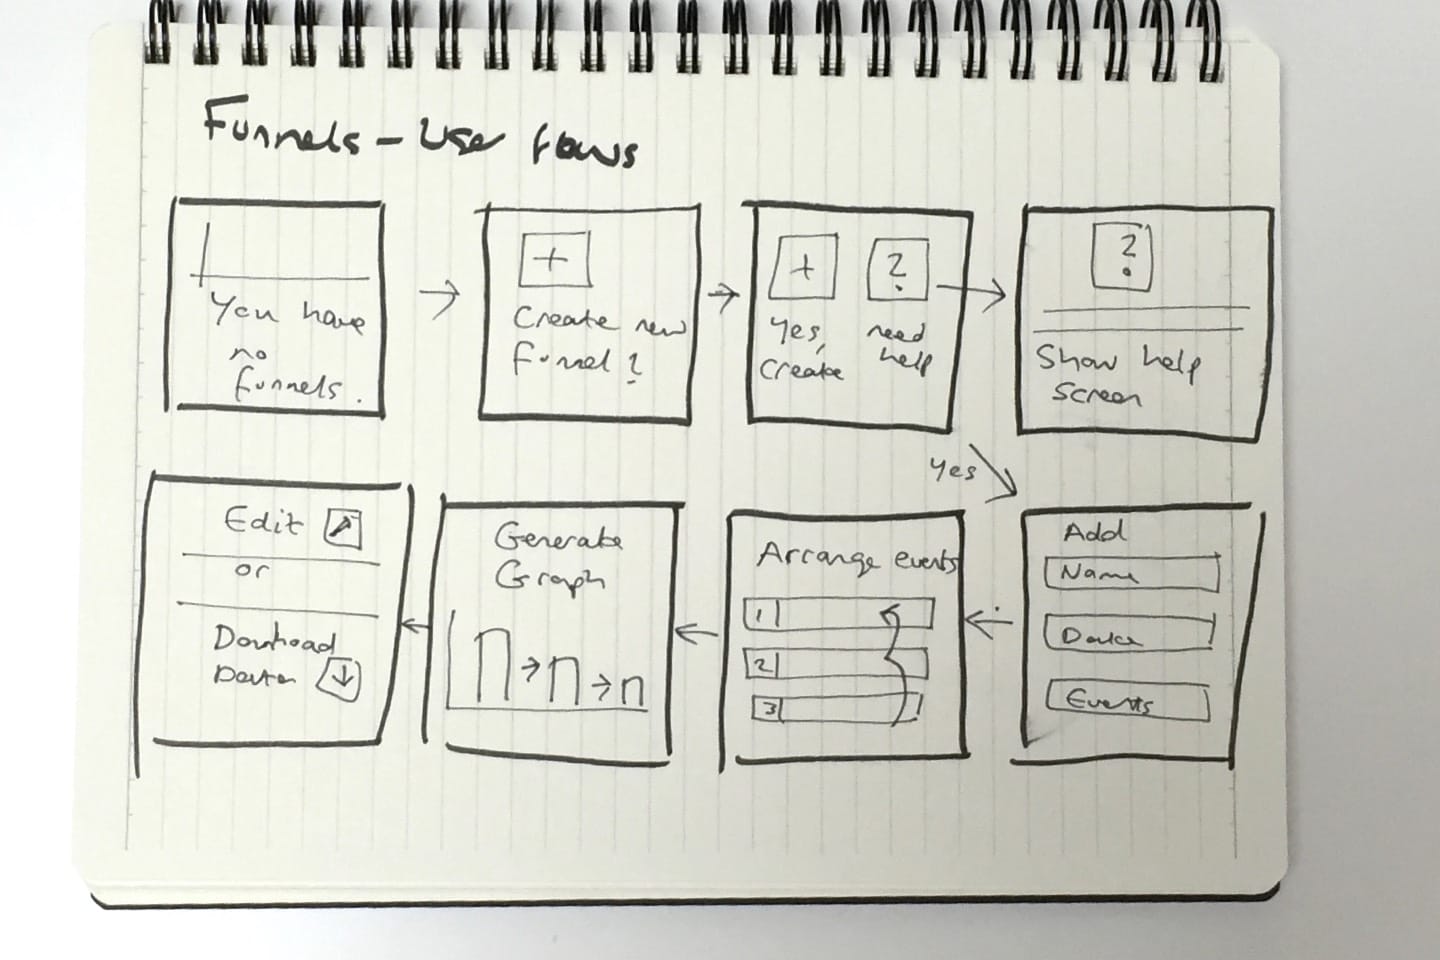 Funnels - Use flows
You have
no
funnels.
+
Create new
funnel?
+
?
Yes,
create
need
help
?
Show help
screen
Yes
Edit
or
Download
Data
Generate
Graph
Arrange events
1
2
3
Add
Name
Device
Events